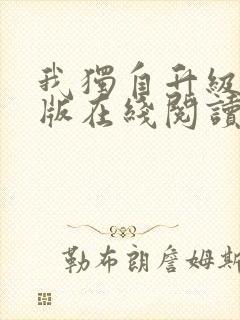 我獨自升級
版在綫閱讀
勒布朗詹姆斯